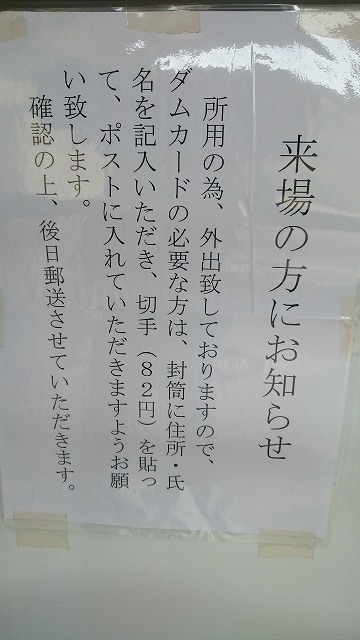 来場の方にお知らせ
所用の為、外出致しておりますので、
ダムカードの必要な方は、封筒に住所・氏
名を記入いただき、切手（８２円）を貼っ
て、ポストに入れていただきますようお願
い致します。
確認の上、後日郵送させていただきます。